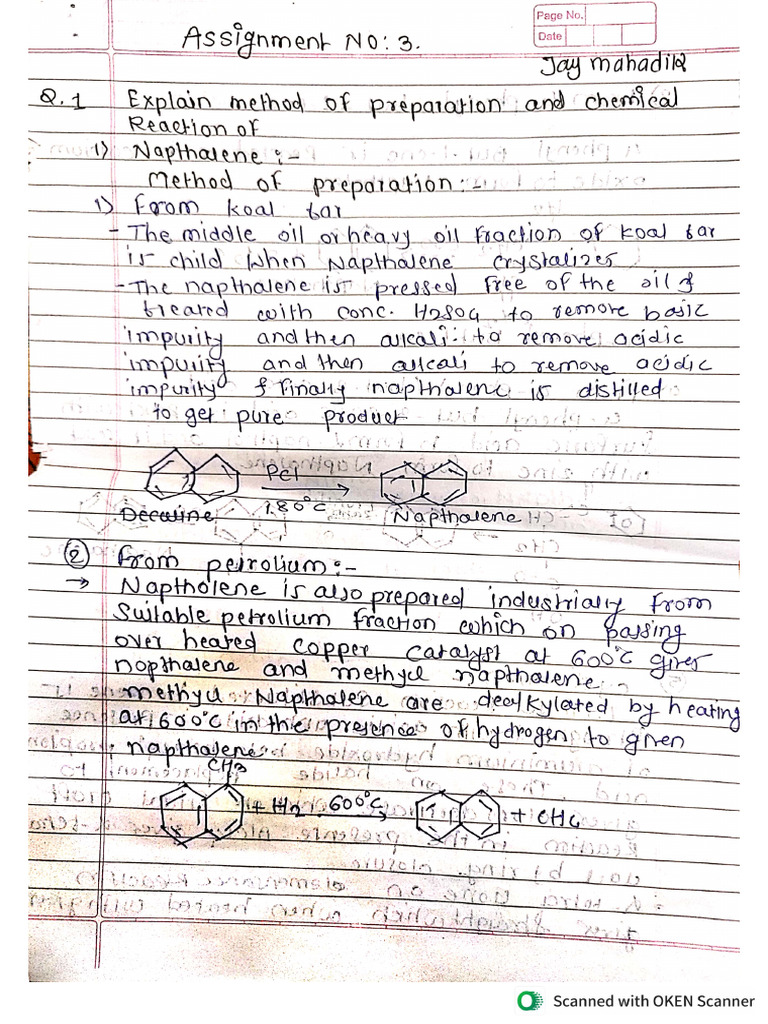 Page No.
Date
Assignment NO: 3.
Jay mahadik
Q.1 Explain method of preparation and chemical
Reaction of
1) Napthalene :-
Method of preparation:-
1) From koal tar
- The middle oil or heavy oil fraction of koal tar
is child when Napthalene crystalizes
- The napthalene is pressed free of the oil &
treated with conc. H2SO4 to remove basic
impurity and then alkali to remove acidic
impurity and then alkali to remove acidic
impurity & Finally napthalene is distilled
to get pure product
Pcl
180°C
Decaline
Napthalene
② From petrolium:-
→ Naptholene is also prepared industrially from
Suitable petrolium fraction which on passing
over heated copper catalyst at 600°C gives
nopthalene and methyl napthalene
methyl Napthalene are dealkylated by heating
at 600°C in the presence of hydrogen to given
napthalene
CH3
+ H2 600°C + CH4
Scanned with OKEN Scanner